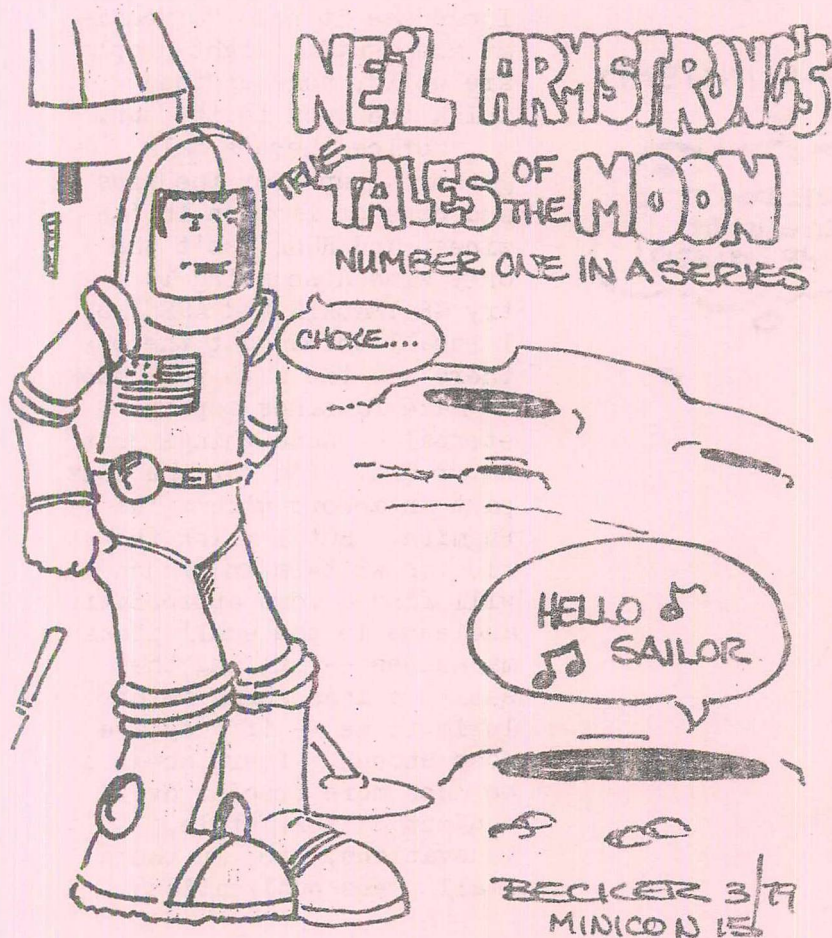 NEIL ARMSTRONG'S
TRUE TALES OF THE MOON
NUMBER ONE IN A SERIES
CHOKE....
HELLO
SAILOR
BECKER 3/79
MINICON 15